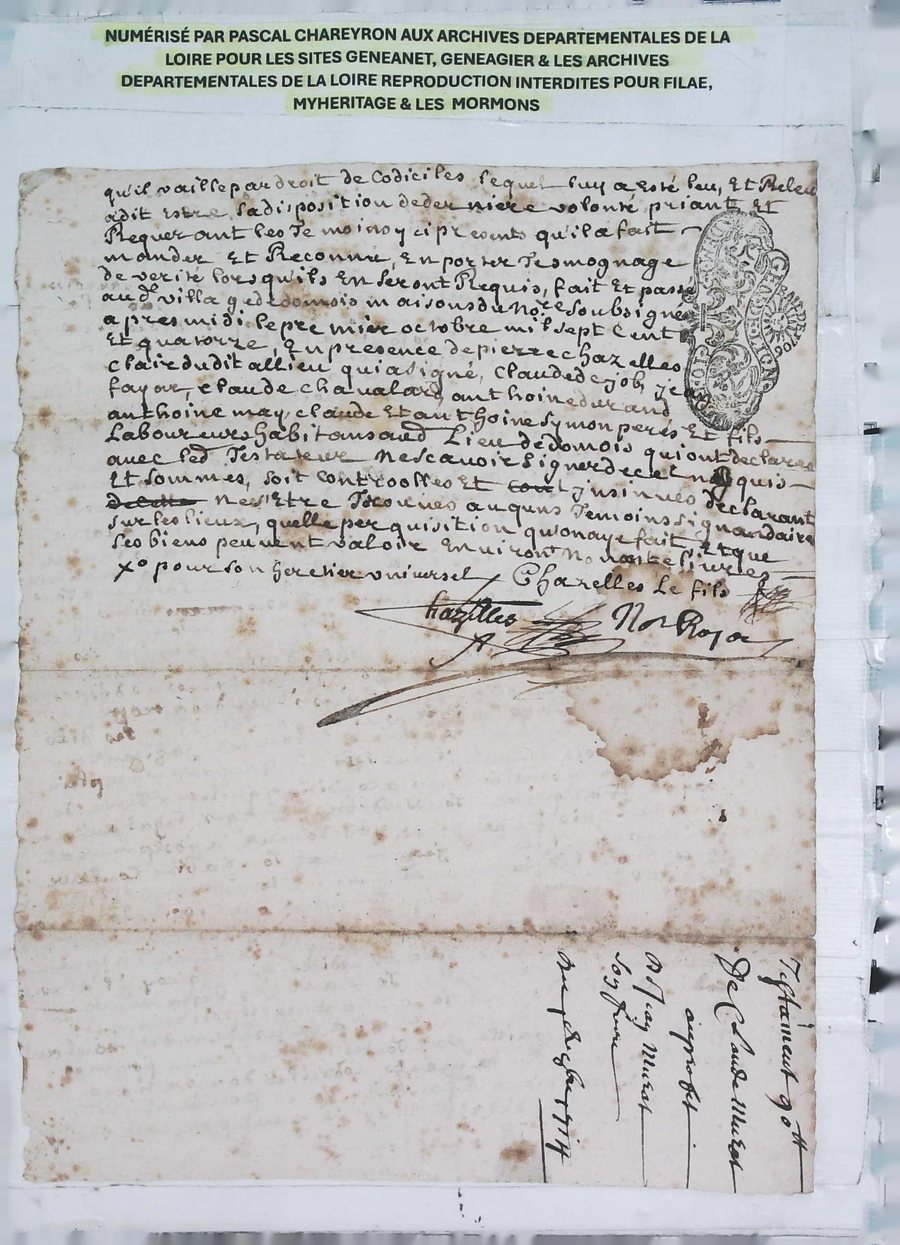 NUMÉRISÉ PAR PASCAL CHAREYRON AUX ARCHIVES DEPARTEMENTALES DE LA
LOIRE POUR LES SITES GENEANET, GENEAGIER & LES ARCHIVES
DEPARTEMENTALES DE LA LOIRE REPRODUCTION INTERDITES POUR FILAE,
MYHERITAGE & LES MORMONS
qu'il vaille par droit de Codiciles lequel luy a esté leu, Et Releu
a dit estre sa disposition de derniere volonté priant Et
Requerant les Temoins y ci presents qu'il a fait
mander Et Reconnu, En porter Tesmognage
de verité lors qu'ils En seront Requis, fait Et passé
aud^t villa de domois maisons du No^re soubsigne
apres midi, le premier octobre mil sept Cent
Et quatorze, En presence de pierre chazelles
clair dudit allieu qui a signé, claude
fayor, claude chavalard anthoine durand
anthoine may, claude Et anthoine symon peres Et fils
Laboureurs habitans aud^ Lieu de domois qui ont declares
avec led^ Testateur ne scavoir signer de ce Enquis
Et sommes, soit controolles Et insinues declarant
nestre Trouves aucuns Temoins signandaire
sur les lieux, quelle perquisition qu'on aye fait, Et que
ses biens peuvent valoir Environt nonante livres
x^o pour son heretier universel Chazelles Le fils
Chazelles Not Royal
GR
Testament 90^tt
De Claude Murat
au profit
De Jean Murat
son frere
1714